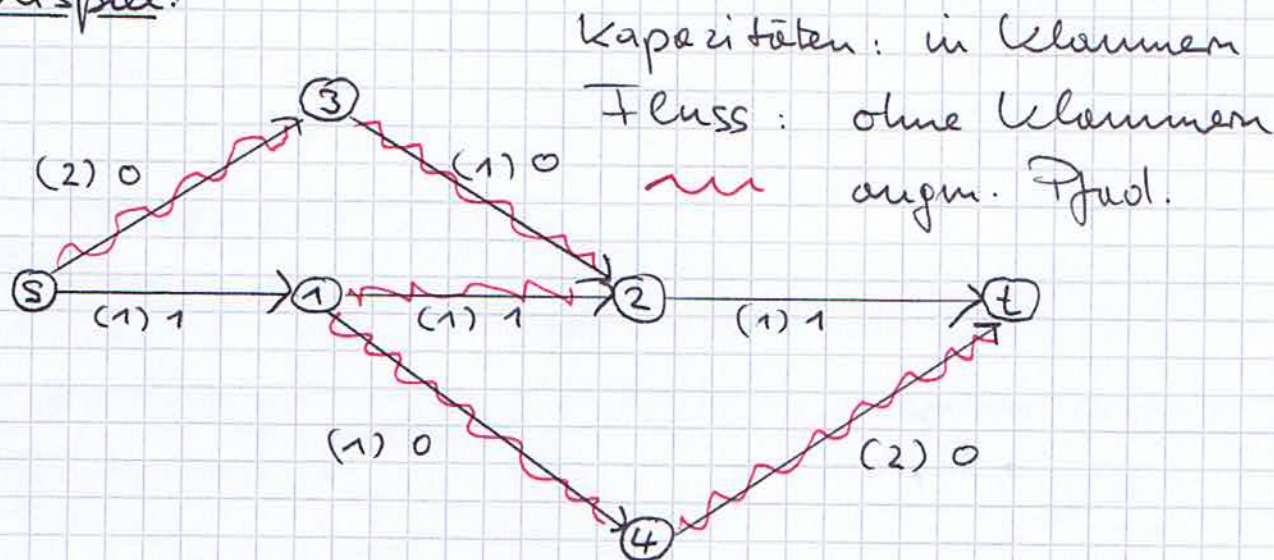 Kapazitäten: in Klammern
Fluss: ohne Klammern
augm. Pfad.
3
(2) 0
(1) 0
s
1
2
t
(1) 1
(1) 1
(1) 1
(1) 0
(2) 0
4